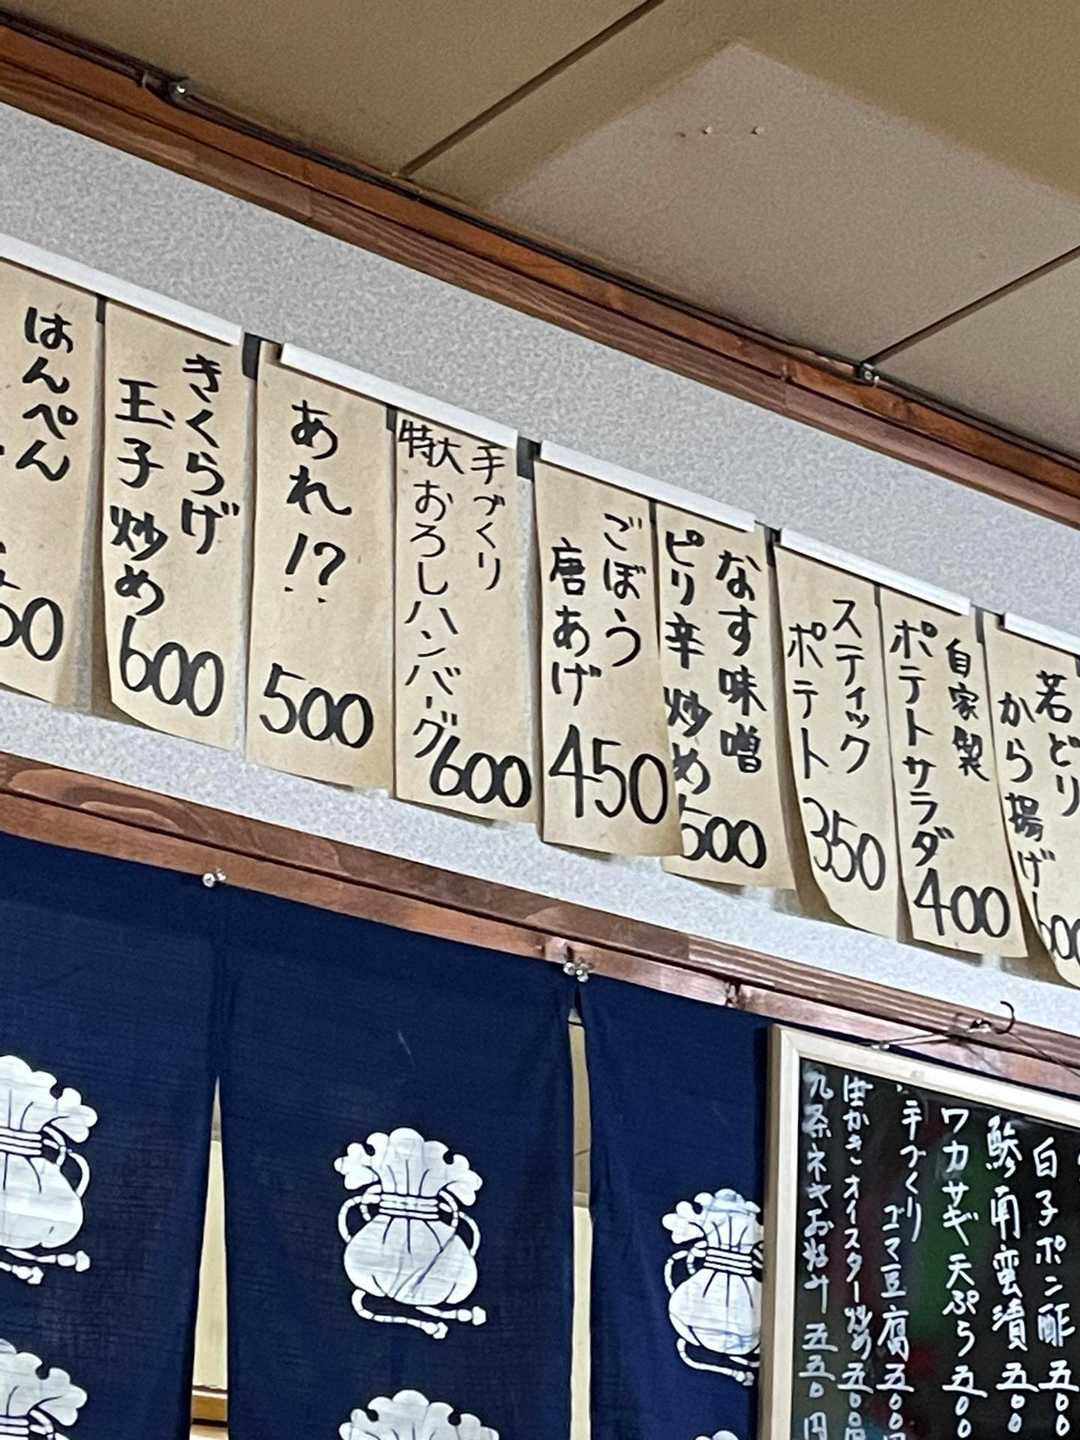 若どり
から揚げ
600
自家製
ポテトサラダ
400
スティック
ポテト
350
なす味噌
ピリ辛炒め
500
ごぼう
唐あげ
450
手づくり
特大おろしハンバーグ
600
あれ!?
500
きくらげ
玉子炒め
600
はんぺん
50
白子ポン酢 五〇〇
鯵南蛮漬 五〇〇
ワカサギ天ぷら 五〇〇
手づくり
ゴマ豆腐 五〇〇円
かきオイスター炒め 五〇〇円
九条ネギお好み 五五〇円